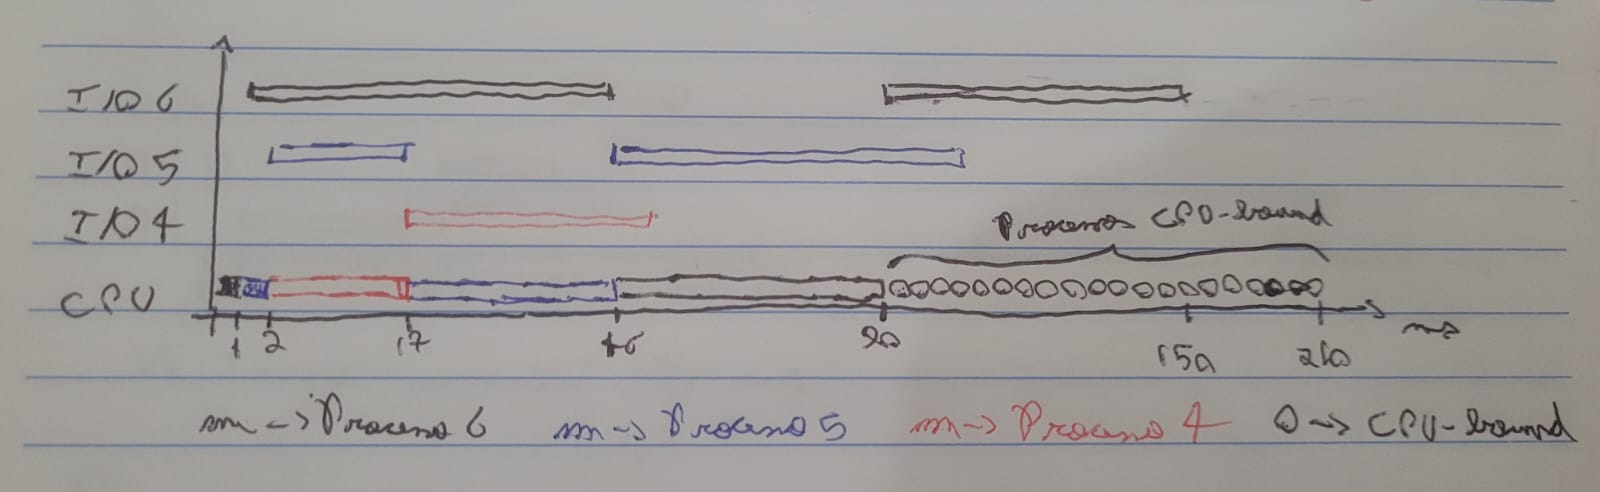 I/O 6
I/O 5
I/O 4
Processos CPU-bound
CPU
1 2 17 46 90 150 210 ms
-> Processo 6 -> Processo 5 -> Processo 4 O -> CPU-bound